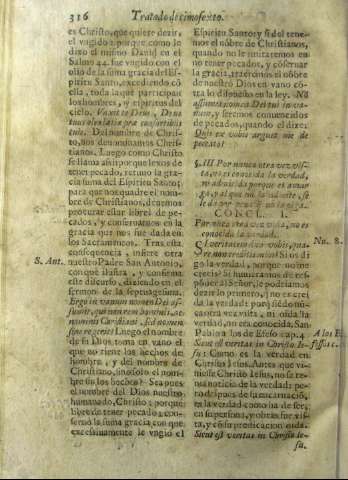 316 Tratado decimosexto.
es Christo, que quiere dezir,
el vngido: porque como le
dixo el mismo Dauid en el
Salmo 44. fue vngido con el
olio de la suma gracia del Es-
piritu Santo, excediendo cõ
ella, toda la que participan
los hombres, y espiritus del
cielo. Vnxit te Deus, Deus
tuus oleo lætitiæ præ consortibus
tuis. Del nombre de Christ-
to, nos denominamos Chris-
tianos. Luego como Christo
se llama assi por que lexos de
tener pecado, retuuo la gra-
cia suma del Espiritu Santo;
para que nos quadre el nom-
bre de Christianos, deuemos
procurar estar libres de pe-
cados, y conseruarnos en la
gracia que nos fue dada en
los Sacramentos. Tras esta
consequencia, infiere otra
S. Ant.
nuestro Padre San Antonio,
con que ilustra, y confirma
este discurso, diziendo en el
sermon de la septuagesima.
Ergo in vanum nomen Dei as-
sumit, qui nomen
minis Christiani, sed nomen
sine re gerit? Luego el nombre
de Dios toma en vano el
que no tiene los hechos de
hombre, y del nombre de
Christiano, sino solo el nom-
bre sin los hechos? Sea pues
el nombre del Dios nuestro
humanado, Christo; porque
libre de tener pecado; con-
seruò la suma gracia con que
excessiuamente le vngio el
Espiritu Santo; y si del tene-
mos el nõbre de Christianos,
quando no le imitaremos en
no tener pecados, y cõseruar
la gracia, traeremos el nõbre
de nuestro Dios en vano cõ-
tra lo dispuesto en la ley. Nõ
assumas nomen Dei tui in va-
num, y seremos conuencidos
de pecados, quando el dize:
Quis ex vobis arguet me de
peccato?
§. III Por nunca otra vez vis-
ta, no es conocida la verdad,
ni admitida porque es amar-
ga, y al que no la admite, se
le da por
CONCL. I.
Por nunca otra vez vista, no es
conocida la verdad.
Nu. 8.
SI veritatem dico vobis, qua-
re non creditis mihi? Si os di-
go la verdad, porque no me
creeis? Si huuieramos de res-
ponder al Señor, le podiamos
dezir lo primero, no es crei-
da la verdad: porq̃ siẽdo nũ-
ca otra vez vista, ni oida la
verdad, no era conocida. San
Pablo à los de Efeso cap. 4
A los E-
fesios c.
Sicut est veritas in Christo Ie-
su: Como es la verdad en
Christo Iesus. Antes que vi-
niesse Christo Iesus, no se te-
nia noticia de la verdad: pe-
rò despues de la encarnacion,
es la verdad como ha de ser,
en su persona, y obras fue vis-
ta, y cõ su predicacion oida.
Sicut est veritas in Christo Ie-
su.